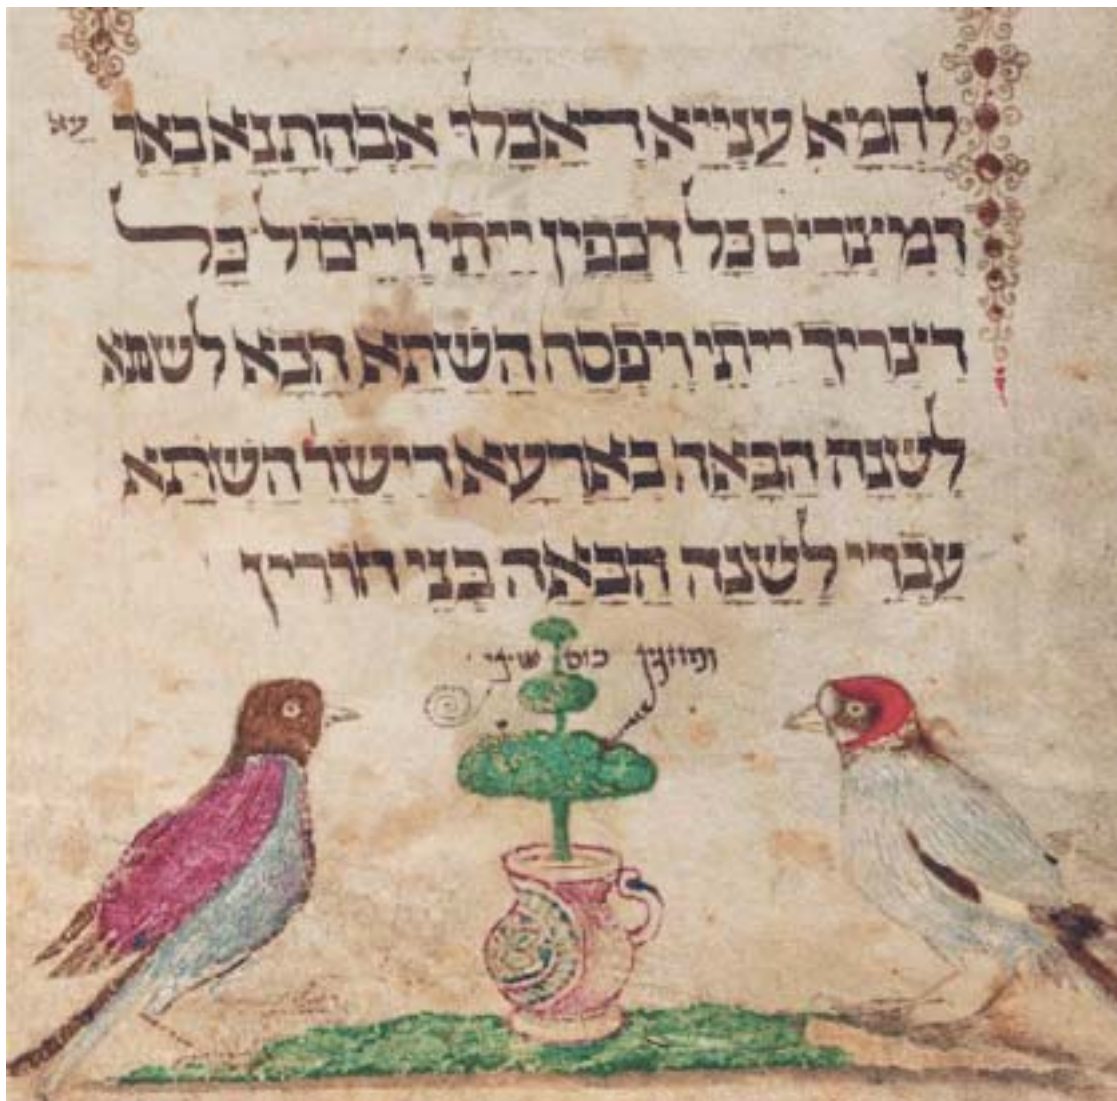 לחמא ענייא די אכלו אבהתנא באר עא
דמצרים כל דכפין ייתי וייכול כל
דצריך ייתי ויפסח השתא הכא לשתא
לשנה הבאה בארעא דישר השתא
עבדי לשנה הבאה בני חורין
ומוזגין כוס שיני